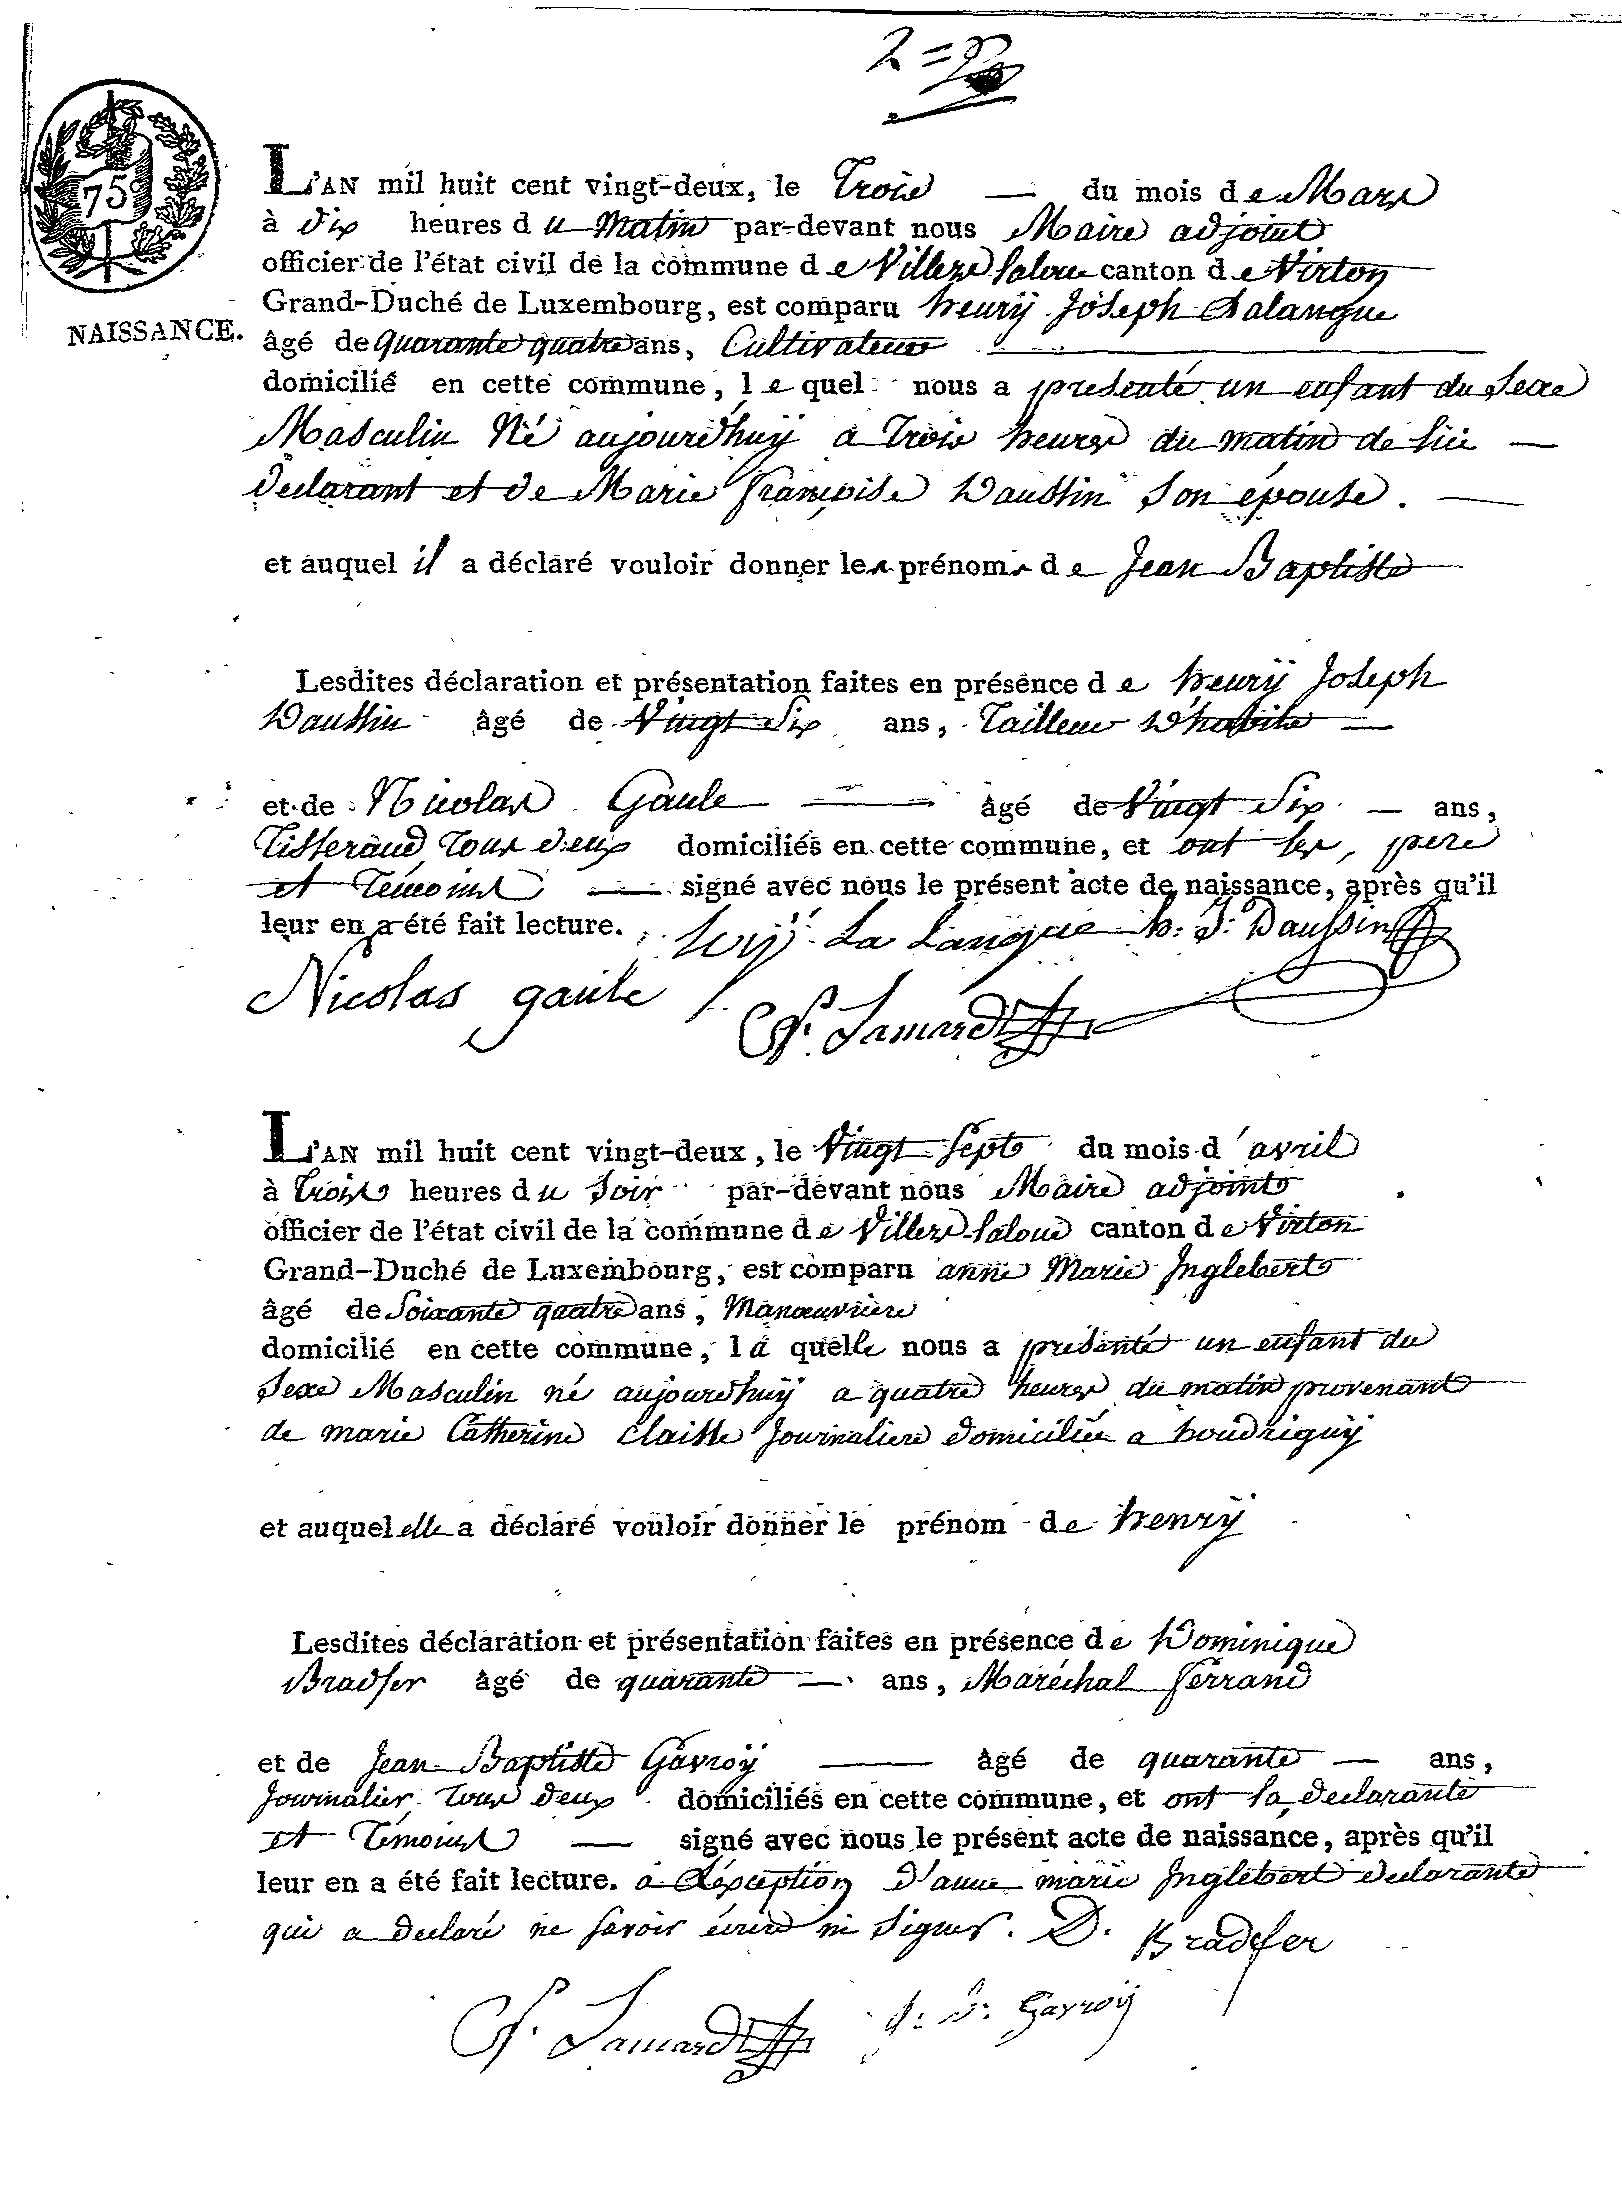 75
NAISSANCE.
L'AN mil huit cent vingt-deux, le Trois — du mois de Mars
à dix heures du Matin par-devant nous Maire adjoint
officier de l'état civil de la commune de Villers Laloue canton de Virton
Grand-Duché de Luxembourg, est comparu henrÿ Joseph Lalangue
âgé de quarante quatre ans, Cultivateur
domicilié en cette commune, lequel nous a presenté un enfant du Sexe
Masculin Né aujourd'huÿ a Trois heures du matin de lui —
declarant et de Marie françoise Daussin Son épouse. —
et auquel il a déclaré vouloir donner les prénoms de Jean Baptiste
Lesdites déclaration et présentation faites en présence de henrÿ Joseph
Daussin âgé de Vingt Six ans, Tailleur D'habits —
et de Nicolas Gaule — âgé de Vingt Six — ans,
Tisserand, Tous deux domiciliés en cette commune, et ont les, pere
et Temoins — signé avec nous le présent acte de naissance, après qu'il
leur en a été fait lecture. La Langue h: J: Daussin
Nicolas gaule
J. Lamard
L'AN mil huit cent vingt-deux, le Vingt Sept du mois d'avril
à Trois heures du Soir par-devant nous Maire adjoint
officier de l'état civil de la commune de Villers Laloue canton de Virton
Grand-Duché de Luxembourg, est comparu anne Marie Inglebert
âgé de Soixante quatre ans, Manœuvriere
domicilié en cette commune, laquelle nous a présenté un enfant du
Sexe Masculin né aujourd'huÿ a quatre heures du matin provenant
de marie Catherine Claisse Journaliere domiciliée a houdriguÿ
et auquel elle a déclaré vouloir donner le prénom de henrÿ
Lesdites déclaration et présentation faites en présence de Dominique
Bradfer âgé de quarante — ans, Maréchal ferrand
et de Jean Baptiste Gavroÿ — âgé de quarante — ans,
Journalier, Tous deux domiciliés en cette commune, et ont la declarante
et Témoins — signé avec nous le présent acte de naissance, après qu'il
leur en a été fait lecture. a L'exception d'anne marie Inglebert declarante
qui a declaré ne savoir écrire ni Signer. D. Bradfer
J. Lamard J: B: Gavroÿ